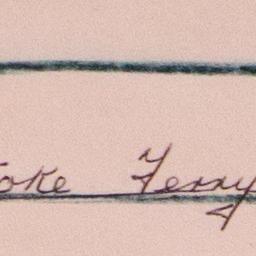 oke Ferry